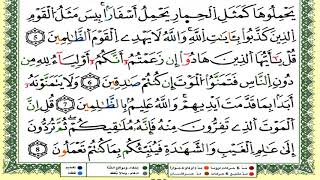 يَحْمِلُوهَا كَمَثَلِ ٱلْحِمَارِ يَحْمِلُ أَسْفَارًۢا ۚ بِئْسَ مَثَلُ ٱلْقَوْمِ
ٱلَّذِينَ كَذَّبُوا۟ بِـَٔايَـٰتِ ٱللَّهِ ۚ وَٱللَّهُ لَا يَهْدِى ٱلْقَوْمَ ٱلظَّـٰلِمِينَ ٥
قُلْ يَـٰٓأَيُّهَا ٱلَّذِينَ هَادُوٓا۟ إِن زَعَمْتُمْ أَنَّكُمْ أَوْلِيَآءُ لِلَّهِ مِن
دُونِ ٱلنَّاسِ فَتَمَنَّوُا۟ ٱلْمَوْتَ إِن كُنتُمْ صَـٰدِقِينَ ٦ وَلَا يَتَمَنَّوْنَهُۥٓ
أَبَدًۢا بِمَا قَدَّمَتْ أَيْدِيهِمْ ۚ وَٱللَّهُ عَلِيمٌۢ بِٱلظَّـٰلِمِينَ ٧ قُلْ إِنَّ
ٱلْمَوْتَ ٱلَّذِى تَفِرُّونَ مِنْهُ فَإِنَّهُۥ مُلَـٰقِيكُمْ ۖ ثُمَّ تُرَدُّونَ
إِلَىٰ عَـٰلِمِ ٱلْغَيْبِ وَٱلشَّهَـٰدَةِ فَيُنَبِّئُكُم بِمَا كُنتُمْ تَعْمَلُونَ ٨